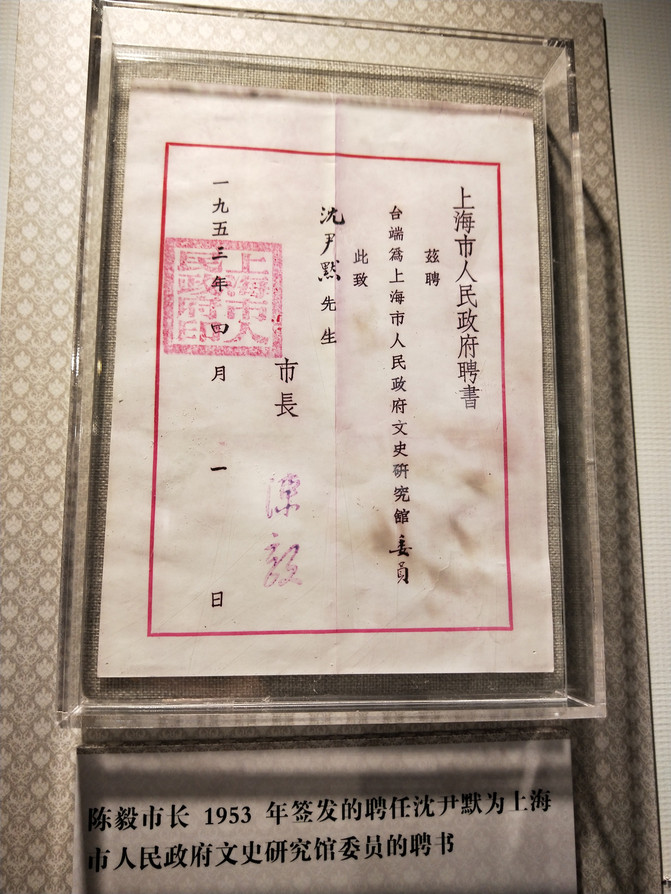 上海市人民政府聘書
茲聘
台端爲上海市人民政府文史研究館委員
此致
沈尹默先生
市長
陳毅
一九五三年四月一日
上海市人
民政府印
陈毅市长 1953 年签发的聘任沈尹默为上海
市人民政府文史研究馆委员的聘书